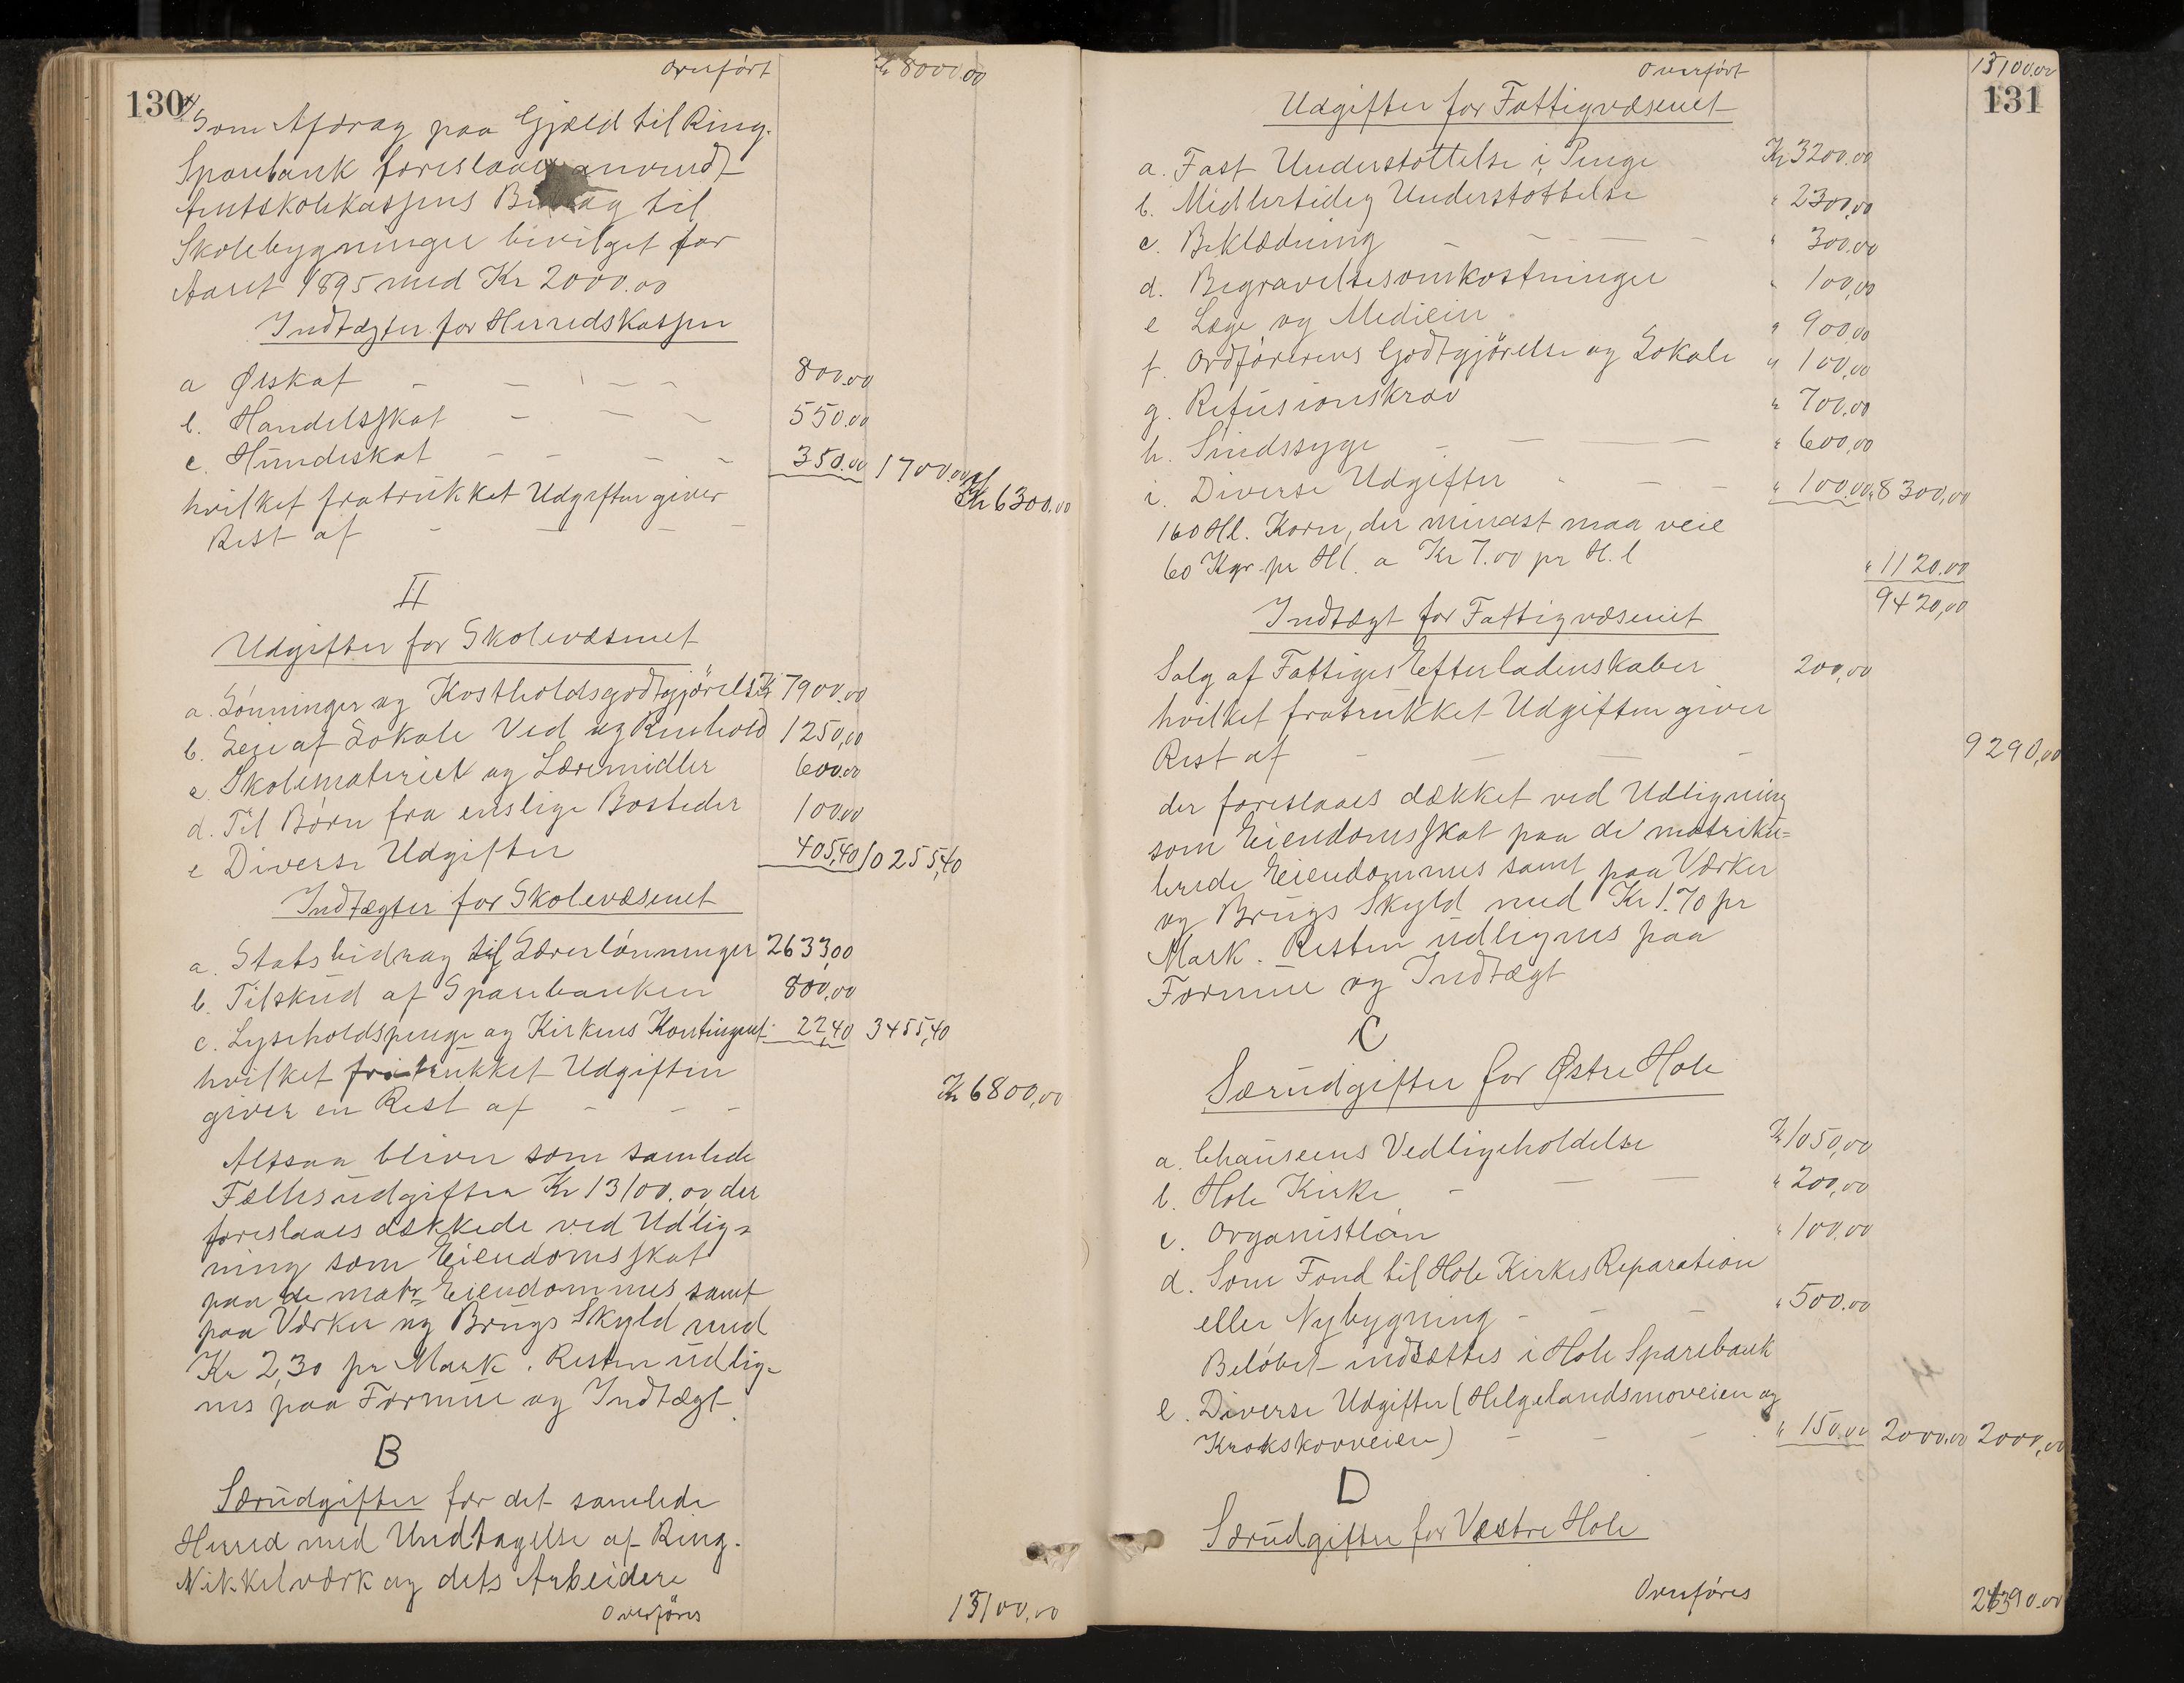 Overført Kr 8000.00
130
Som Afdrag paa Gjæld til Ring.
Sparebank foreslaaes anvendt
Amtskolekassens Bidrag til
Skolebygninger bevilget for
Aaret 1895 med Kr 2000.00
Indtægter for Herredskassen
a Ølskat - - - - - 800.00
b. Handelsskat - - - 550.00
c. Hundeskat - - - - 350.00 1700.00
hvilket fratrukket Udgiften giver
Rest af - - - - Kr 6300.00
II
Udgifter for Skolevæsenet
a. Lønninger og Kostholdsgodtgjørelse Kr 7900.00
b. Leie af Lokale Ved og Renhold 1250,00
c. Skolemateriel og Læremidler 600.00
d. Til Børn fra enslige Bosteder 100.00
e Diverse Udgifter 405,40 10255,40
Indtægter for Skolevæsenet
a. Statsbidrag til Lærerlønninger 2633,00
b. Tilskud af Sparebanken 800,00
c. Lyseholdspenge og Kirkens Kontingent 22,40 3455,40
hvilket fratrukket Udgiften
giver en Rest af - - - Kr 6800,00
Altsaa bliver som samlede
Fællesudgifter Kr 13100,00 der
foreslaaes dækkede ved Udlig=
ning som Eiendomsskat
paa de matr= Eiendommes samt
paa Værker og Brugs Skyld med
Kr 2,30 pr Mark. Resten udlig=
nes paa Formue og Indtægt
B
Særudgifter for det samlede
Herred med Undtagelse af Ring.
Nikkelværk og dets Arbeidere
Overføres 13100,00
Overført 13100.00
131
Udgifter for Fattigvæsenet
a. Fast Understøttelse i Penge Kr 3200.00
b. Midlertidig Understøttelse " 2300,00
c. Beklædning - - - - " 300.00
d. Begravelsesomkostninger " 100,00
e Læge og Medicin " 900,00
f. Ordførerens Godtgjørelse og Lokale " 100,00
g. Refusionskrav " 700,00
h. Sindssyge - - - - " 600,00
i. Diverse Udgifter - - - " 100.00 " 8300,00
160 Hl. Korn, der mindst maa veie
60 Kgr. pr Hl. a Kr 7.00 pr H.l " 1120.00
9420,00
Indtægt for Fattigvæsenet
Salg af Fattiges Efterladenskaber 200,00
hvilket fratrukket Udgiften giver
Rest af - - - - 9290,00
der foreslaaes dækket ved Udligning
som Eiendomsskat paa de matriku=
lerede Eiendommes samt paa Værker
og Brugs Skyld med Kr 1.70 pr
Mark. Resten udlignes paa
Formue og Indtægt
C
Særudgifter for Østre Hole
a. Chauseens Vedligeholdelse Kr 1050,00
b. Hole Kirke - - - " 200,00
c. Organistløn " 100,00
d. Som Fond til Hole Kirkes Reparation
eller Nybygning - - - " 500.00
Beløbet indsættes i Hole Sparebank
e. Diverse Udgifter (Helgelandsmoveien og
Krokskovveien) - - - " 150.00 2000.00 2000,00
D
Særudgifter for Vestre Hole
Overføres 24390.00